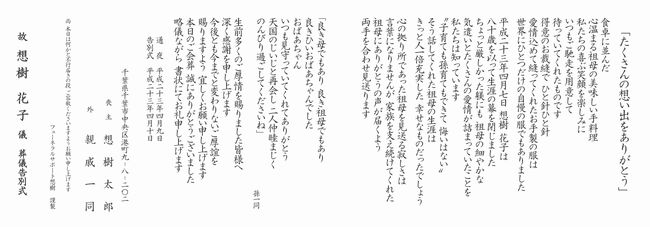 「たくさんの想い出をありがとう」
食卓に並んだ
心温まる祖母の美味しい手料理
私たちの喜ぶ笑顔を楽しみに
いつもご馳走を用意して
待っていてくれたものです
得意のお裁縫で ひと針ひと針
愛情込めて縫ってくれたお手製の服は
世界にひとつだけの自慢の服でもありました
平成二十三年四月七日 想樹 花子は
八十歳を以って生涯の幕を閉じました
ちょっと厳しかった躾にも 祖母の細やかな
気遣いとたくさんの愛情が詰まっていたことを
私たちは知っています
“子育ても孫育てもできて 悔いはない”
そう話してくれた祖母の生涯は
きっと人一倍充実した 幸せなものだったでしょう
心の拠り所であった祖母を見送る寂しさは
言葉になりませんが 家族を支え続けてくれた
祖母にありがとうの声が届くよう
両手を合わせ見送ります
「良き母でもあり 良き祖母でもあり
良きひいおばあちゃんでした
おばあちゃん
いつも見守っていてくれてありがとう
天国のじいじと再会し 二人仲睦まじく
のんびり過ごしてくださいね」
孫一同
生前多くのご厚情を賜りました皆様へ
深く感謝を申し上げます
今後とも今までと変わりないご厚誼を
賜りますよう 宜しくお願い申し上げます
本日のご会葬 誠にありがとうございました
略儀ながら 書状にてお礼申し上げます
通夜 平成二十三年四月九日
告別式 平成二十三年四月十日
千葉県千葉市中央区港町九-八-二〇二
喪主 想樹 太郎
外 親戚一同
尚 本日は何かと不行届きの段 ご容赦くださいますようお願い申し上げます
フューネラルサポート想樹 謹製
故 想樹 花子 儀 葬儀告別式